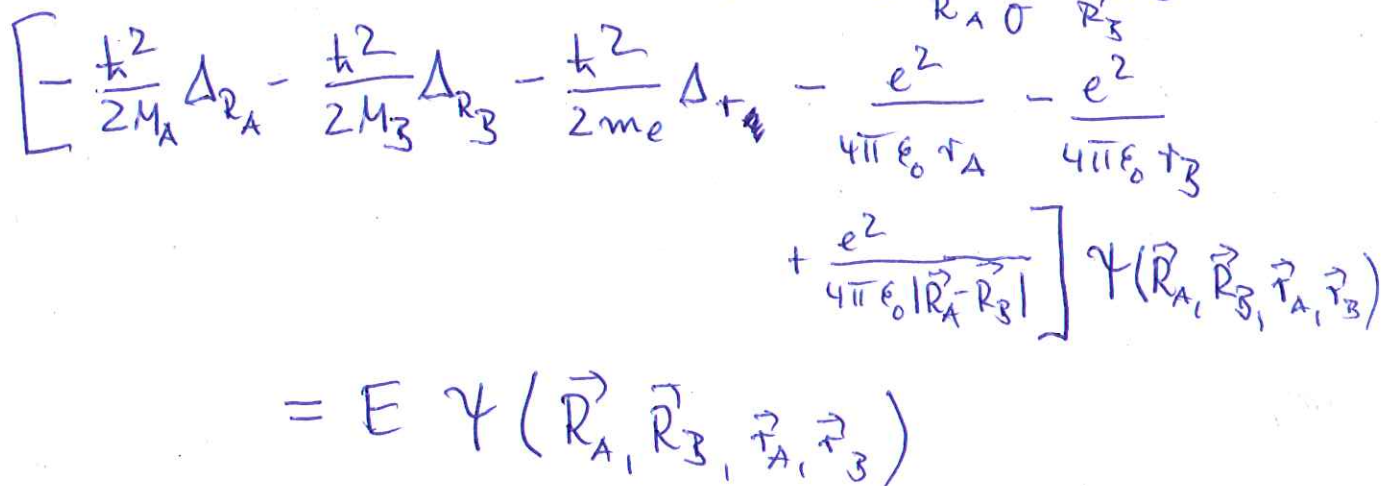 R_A O R_B
[ -\frac{\hbar^2}{2M_A} \Delta_{R_A} - \frac{\hbar^2}{2M_B} \Delta_{R_B} - \frac{\hbar^2}{2m_e} \Delta_r - \frac{e^2}{4\pi\epsilon_0 r_A} - \frac{e^2}{4\pi\epsilon_0 r_B}
+ \frac{e^2}{4\pi\epsilon_0 |\vec{R}_A - \vec{R}_B|} ] \Psi(\vec{R}_A, \vec{R}_B, \vec{r}_A, \vec{r}_B)
= E \Psi(\vec{R}_A, \vec{R}_B, \vec{r}_A, \vec{r}_B)